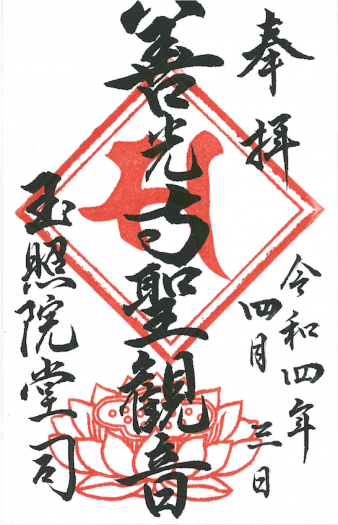 奉拝
令和四年
四月三日
善光寺聖観音
玉照院堂司
サ